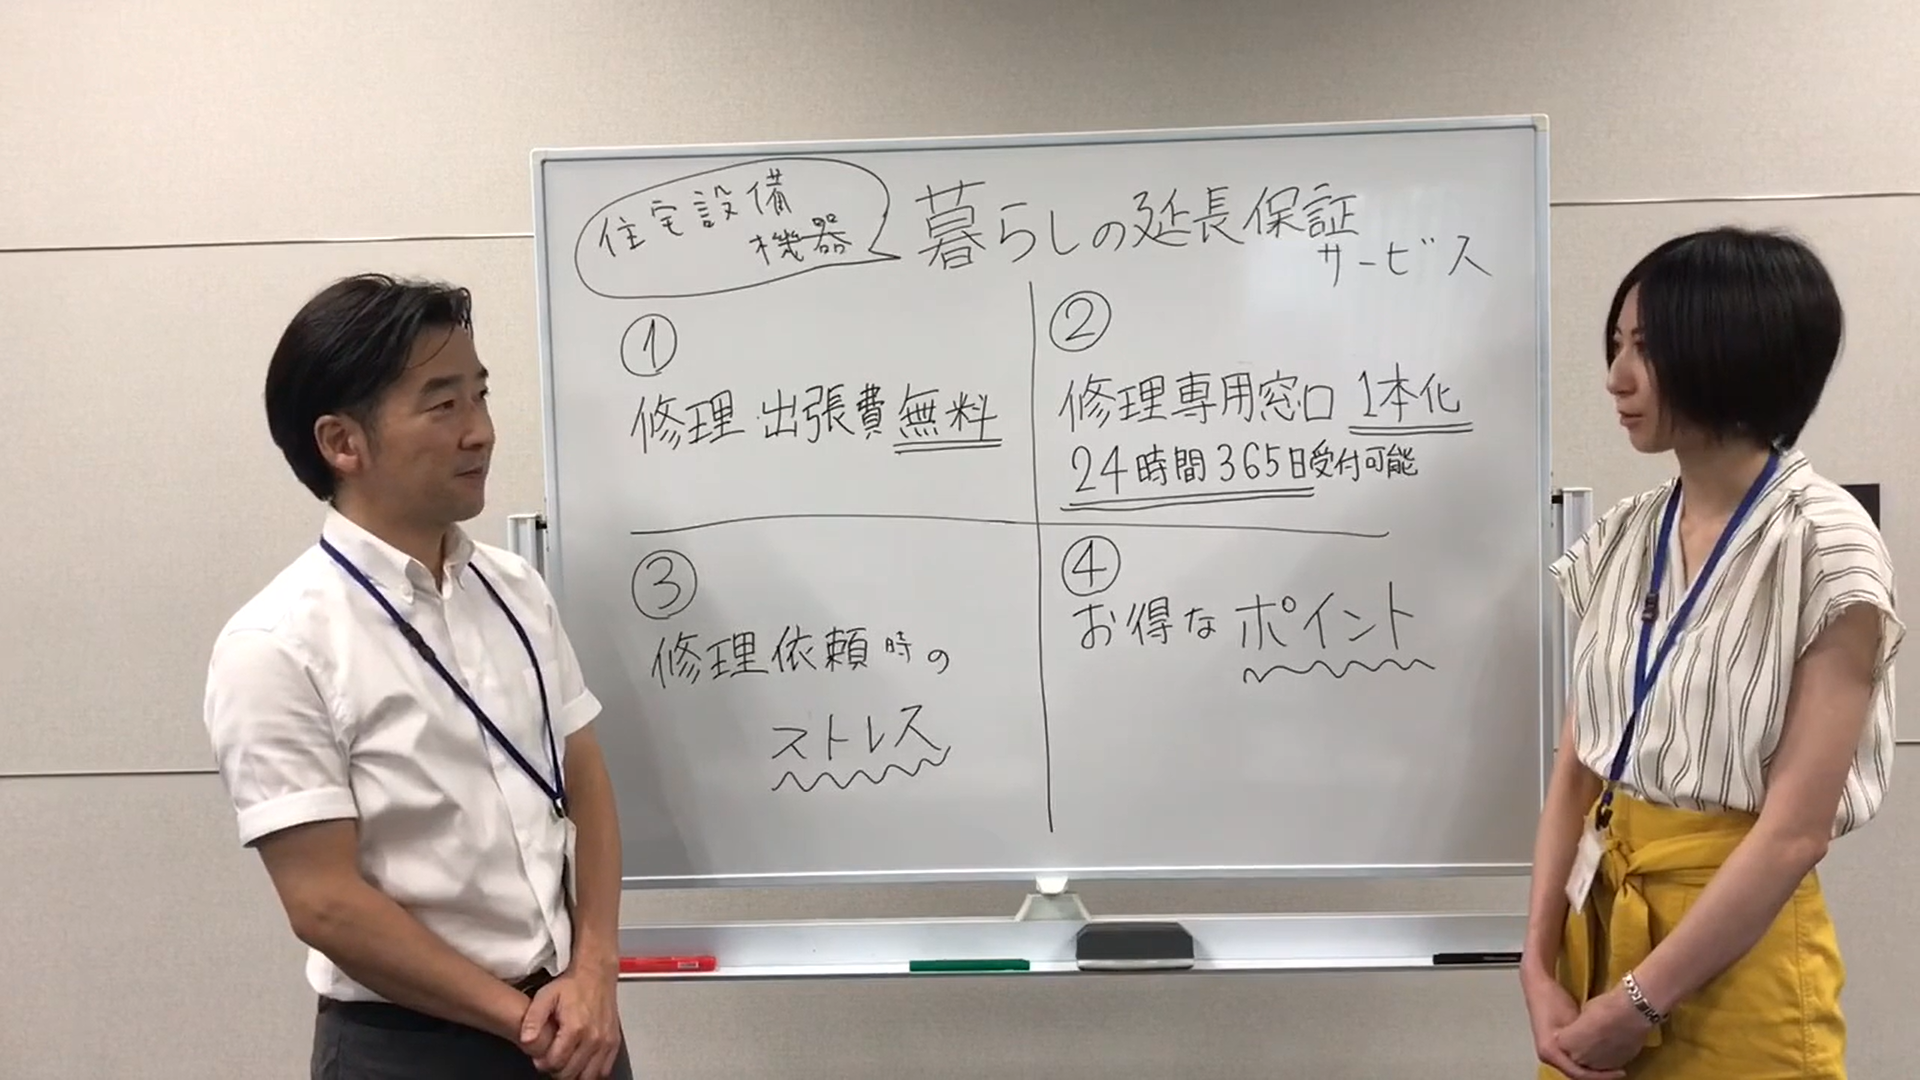 住宅設備
機器
暮らしの延長保証
サービス
①
修理 出張費無料
②
修理専用窓口 1本化
24時間365日受付可能
③
修理依頼時の
ストレス
④
お得なポイント